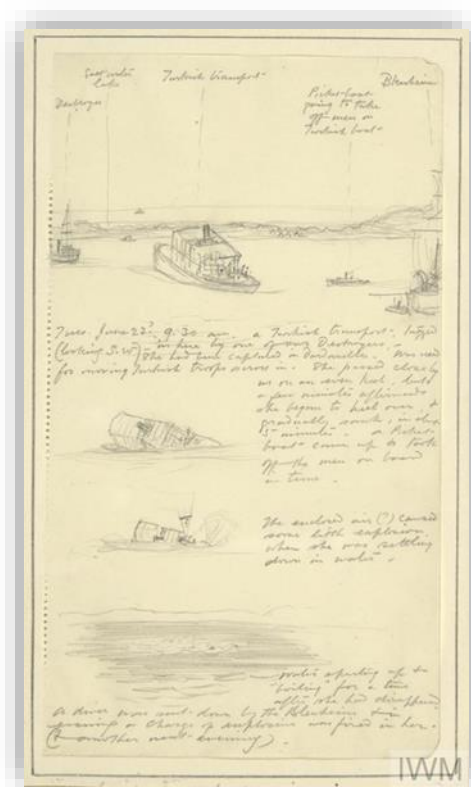 Salt water
Lake
Turkish transport
Blenheim
Destroyer
Picket-boat
going to take
off men on
Turkish boat
Tues. June 22? 9.30 am. a Turkish transport. lugged
(looking S.W) in here by one of our Destroyers.
She had been captured in Dardanelles. Was used
for moving Turkish troops across in. She passed close by
us on an even keel, but
a few minutes afterwards
she began to heel over &
gradually sank, in about
5 minutes. a Picket
boat came up & took
off the men on board
in time.
The enclosed air (?) caused
some little explosion
when she was settling
down in water.
water spurting up &
"boiling" for a time
after she had disappeared
A diver was sent down by the Blenheim & in
evening a charge of explosive was fired in her.
(& another next evening).
IWM